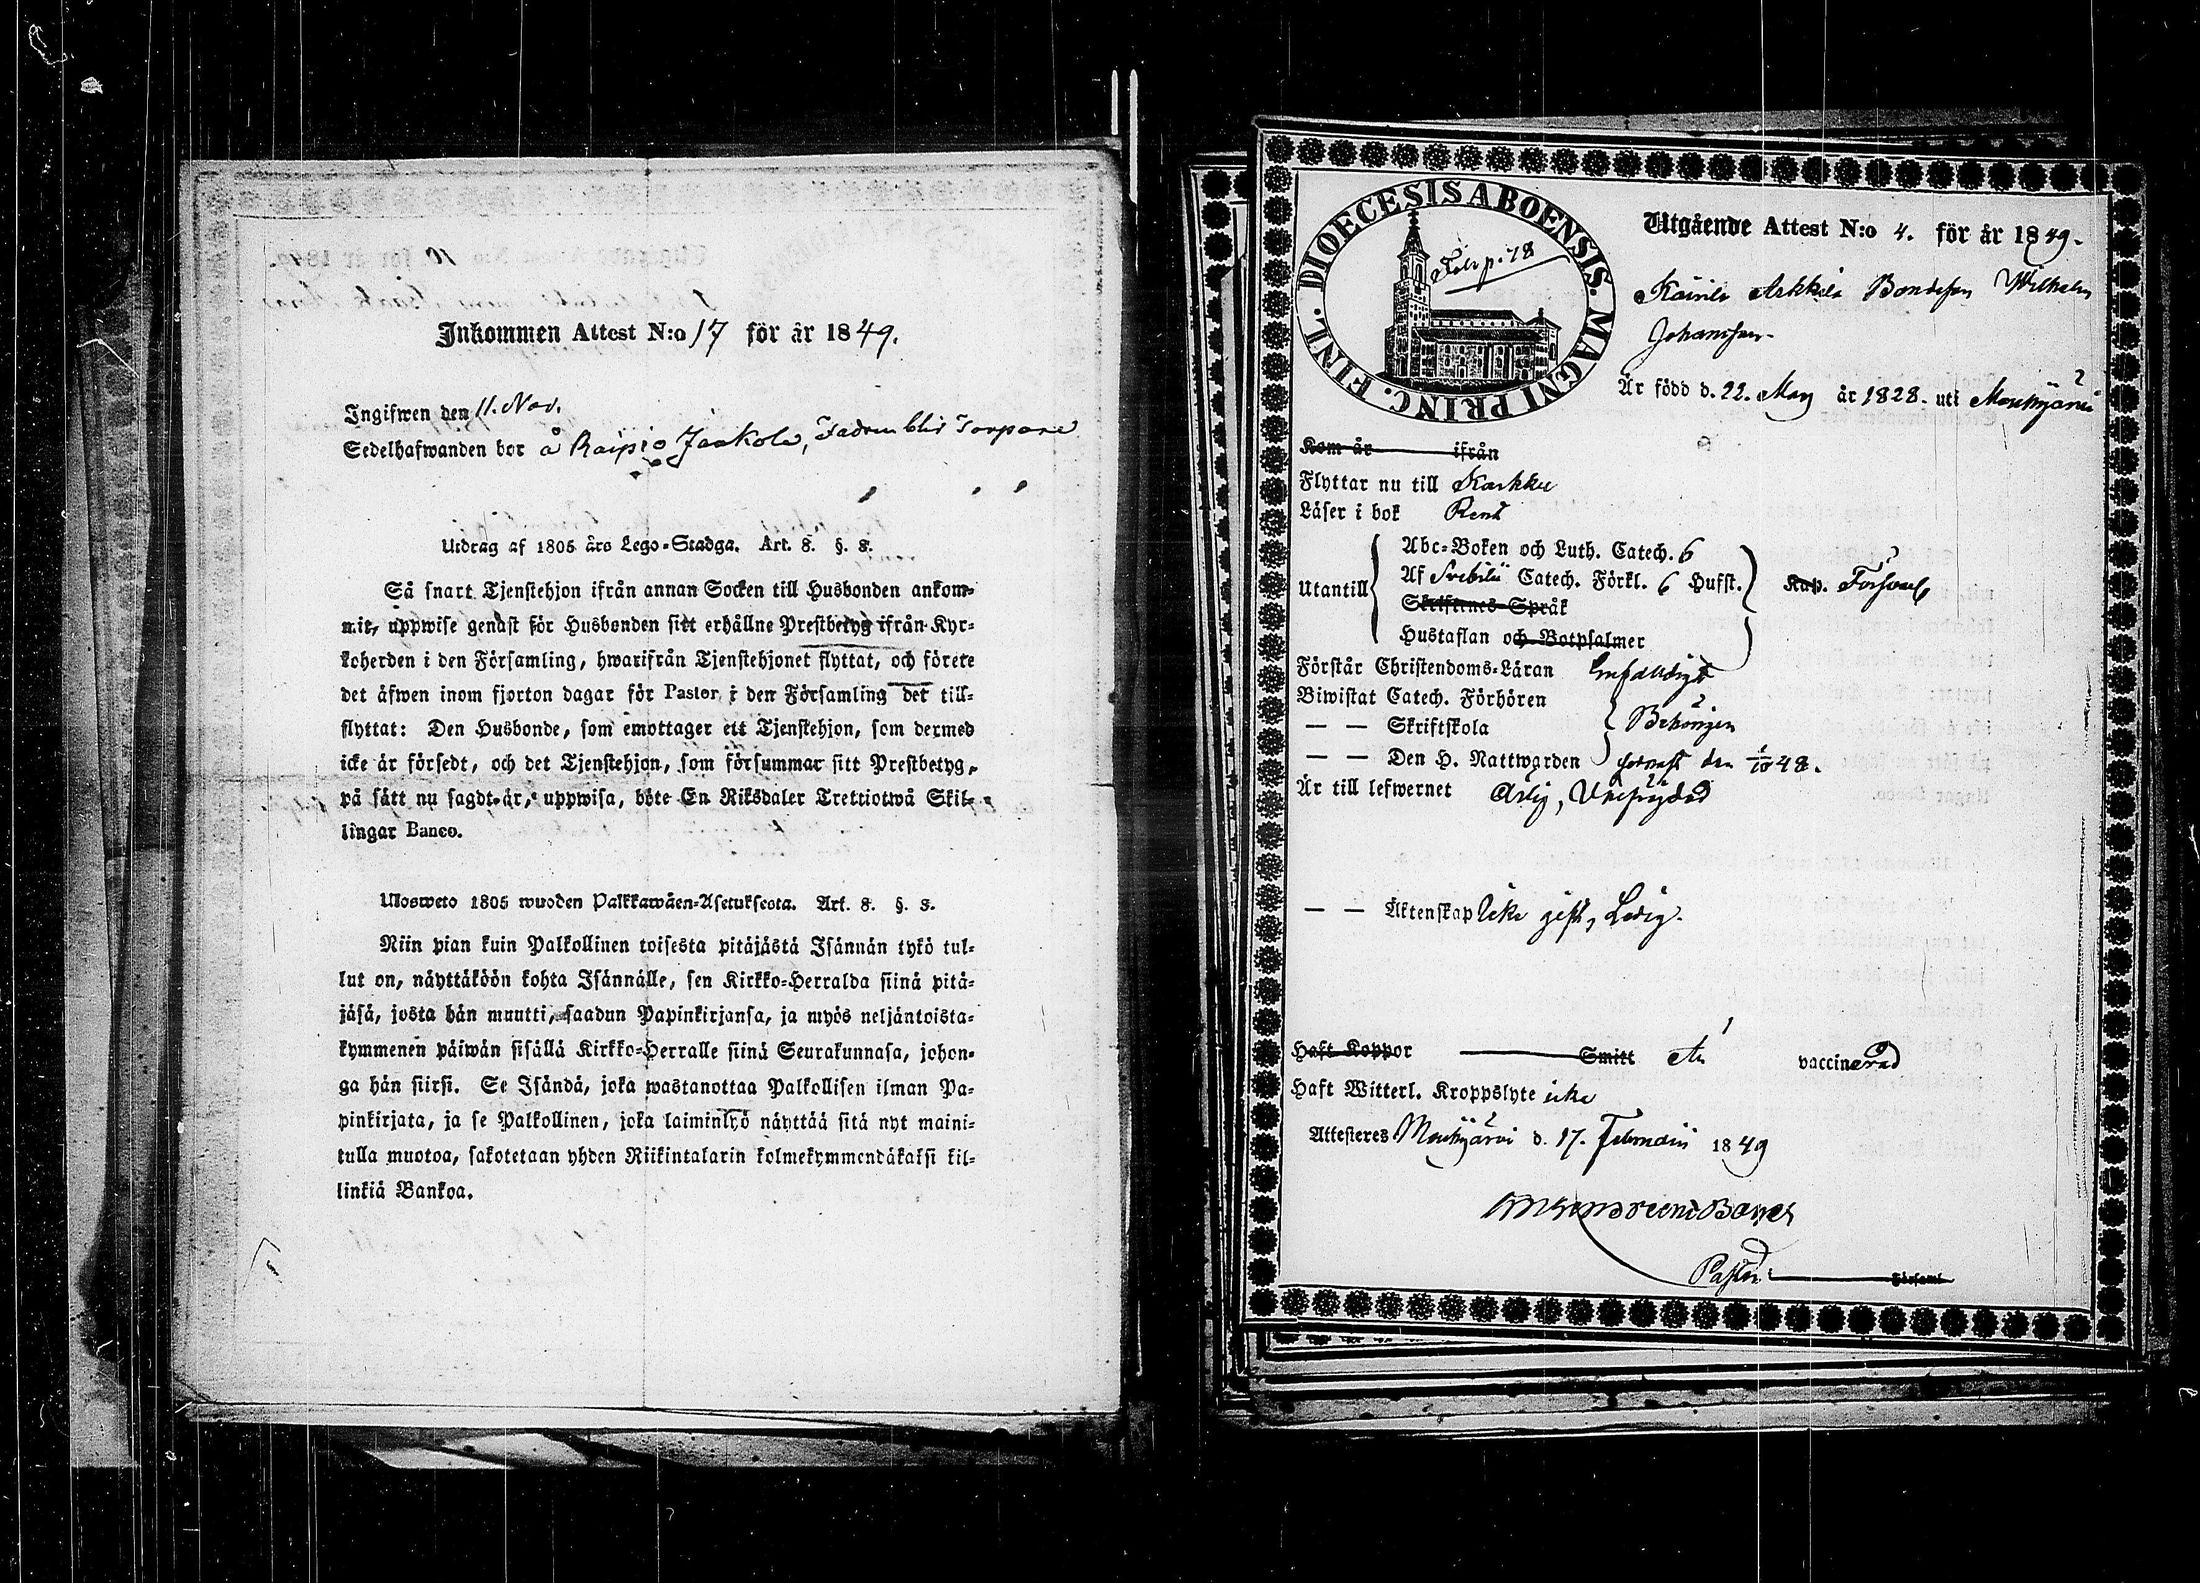 Inkommen Attest N:o 17 för år 1849.
Ingifwen den 11. Nov.
Sedelhafwanden bor å Raipio Jaakola, Fadren blir Torpare
Utdrag af 1805 års Lego-Stadga. Art. 8. §. 8.
Så snart Tjenstehjon ifrån annan Socken till Husbonden ankom-
mit, uppwise genast för Husbonden sitt erhållne Prestbetyg ifrån Kyr-
koherden i den Församling, hwarifrån Tjenstehjonet flyttat, och förete
det äfwen inom fjorton dagar för Pastor i den Församling det till-
flyttat: Den Husbonde, som emottager ett Tjenstehjon, som dermed
icke är försedt, och det Tjenstehjon, som försummar sitt Prestbetyg,
på sätt nu sagdt är, uppwisa, böte En Riksdaler Trettiotwå Skil-
lingar Banco.
Ulosweto 1805 wuoden Palkkawäen-Asetuksesta. Art. 8. §. 8.
Niin pian kuin Palkollinen toisesta pitäjästä Isännän tykö tul-
lut on, näyttäköön kohta Isännälle, sen Kirkko-Herralda siinä pitä-
jäsä, josta hän muutti, saadun Papinkirjansa, ja myös neljäntoista-
kymmenen päiwän sisällä Kirkko-Herralle siinä Seurakunnasa, johon-
ga hän siirsi. Se Isändä, joka wastanottaa Palkollisen ilman Pa-
pinkirjata, ja se Palkollinen, joka laiminlyö näyttää sitä nyt maini-
tulla muotoa, sakotetaan yhden Riikintalarin kolmekymmendäkaksi kil-
linkiä Bankoa.
DIOECESIS ABOENSIS. MAGNI PRINC. FINL.
p. 78
Utgående Attest N:o 4. för år 1849.
Bondeson Wilhelm
Johansson
Är född d. 22. May år 1828. uti Mouhijärvi
Kom år ifrån
Flyttar nu till Karkku
Läser i bok Rent
Utantill
Abc-Boken och Luth. Catech. 6
Af Svebilii Catech. Förkl. 6 Hufst. Kap. Försvarl.
Skriftenes Språk
Hustaflan och Botpsalmer
Förstår Christendoms-Läran Enfaldigt
Biwistat Catech. Förhören
— — Skriftskola Behörigen
— — Den H. Nattwarden senast den 1/10 48.
Är till lefwernet Ärlig, Oberygtad
— — Äktenskap icke gift, Ledig.
Haft Koppor Smitt Är vaccinerad
Haft Witterl. Kroppslyte icke
Attesteres Mouhijärvi d. 17. Februarii 1849
Pastor Församl